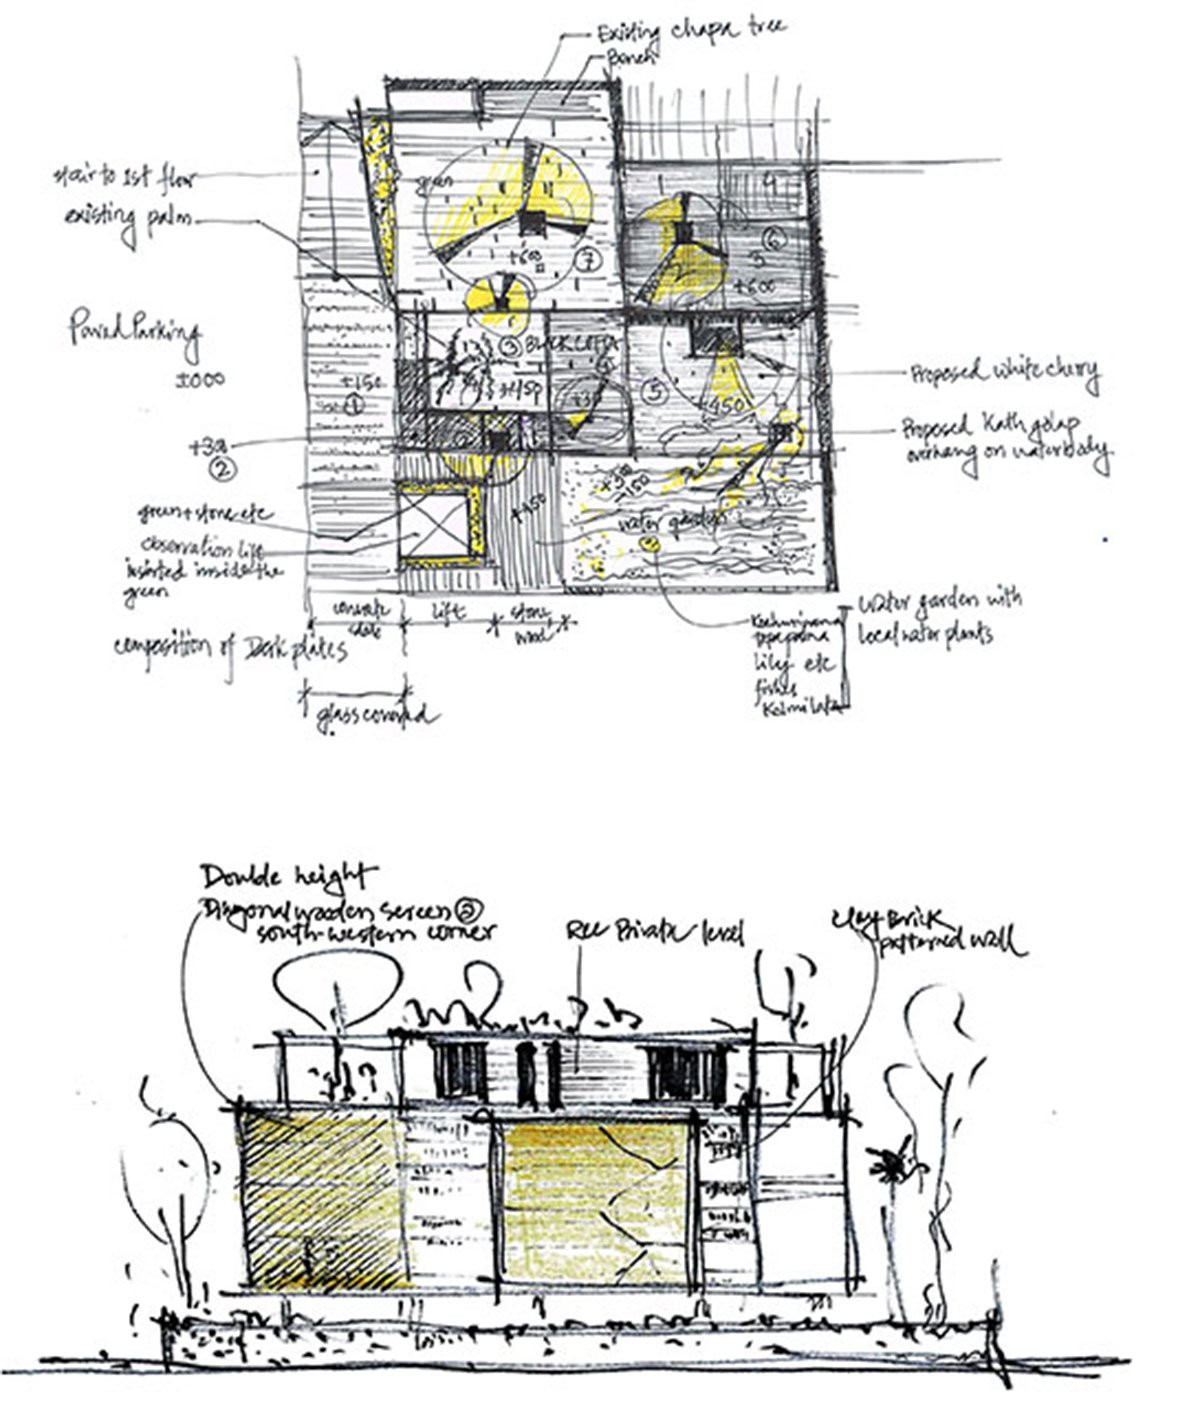 Existing chapa tree
Bench
stair to 1st floor
existing palm
green
+600
7
4
6
3
+600
Paved Parking
±000
+150
1
3
BLACK
+450
5
+450
Proposed white cherry
Proposed Kath golap
overhang on waterbody
2
green + stone etc
observation lift
inserted inside the
green
+450
water garden
concrete
lift
stone
wood
composition of Deck plates
glass covered
Lily etc
fishes
water garden with
local water plants
Double height
Diagonal wooden screen @
south-western corner
Private level
clay Brick
patterned wall